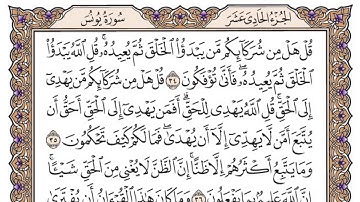 الجزء الحادي عشر
سورة يونس
قُلْ هَلْ مِن شُرَكَآئِكُم مَّن يَبْدَؤُا۟ ٱلْخَلْقَ ثُمَّ يُعِيدُهُۥ ۚ قُلِ ٱللَّهُ يَبْدَؤُا۟
ٱلْخَلْقَ ثُمَّ يُعِيدُهُۥ ۖ فَأَنَّىٰ تُؤْفَكُونَ ٣٤ قُلْ هَلْ مِن شُرَكَآئِكُم مَّن يَهْدِىٓ
إِلَى ٱلْحَقِّ ۚ قُلِ ٱللَّهُ يَهْدِى لِلْحَقِّ ۗ أَفَمَن يَهْدِىٓ إِلَى ٱلْحَقِّ أَحَقُّ أَن
يُتَّبَعَ أَمَّن لَّا يَهِدِّىٓ إِلَّآ أَن يُهْدَىٰ ۖ فَمَا لَكُمْ كَيْفَ تَحْكُمُونَ ٣٥
وَمَا يَتَّبِعُ أَكْثَرُهُمْ إِلَّا ظَنًّا ۚ إِنَّ ٱلظَّنَّ لَا يُغْنِى مِنَ ٱلْحَقِّ شَيْـًٔا ۚ
إِنَّ ٱللَّهَ عَلِيمٌۢ بِمَا يَفْعَلُونَ ٣٦ وَمَا كَانَ هَـٰذَا ٱلْقُرْءَانُ أَن يُفْتَرَىٰ